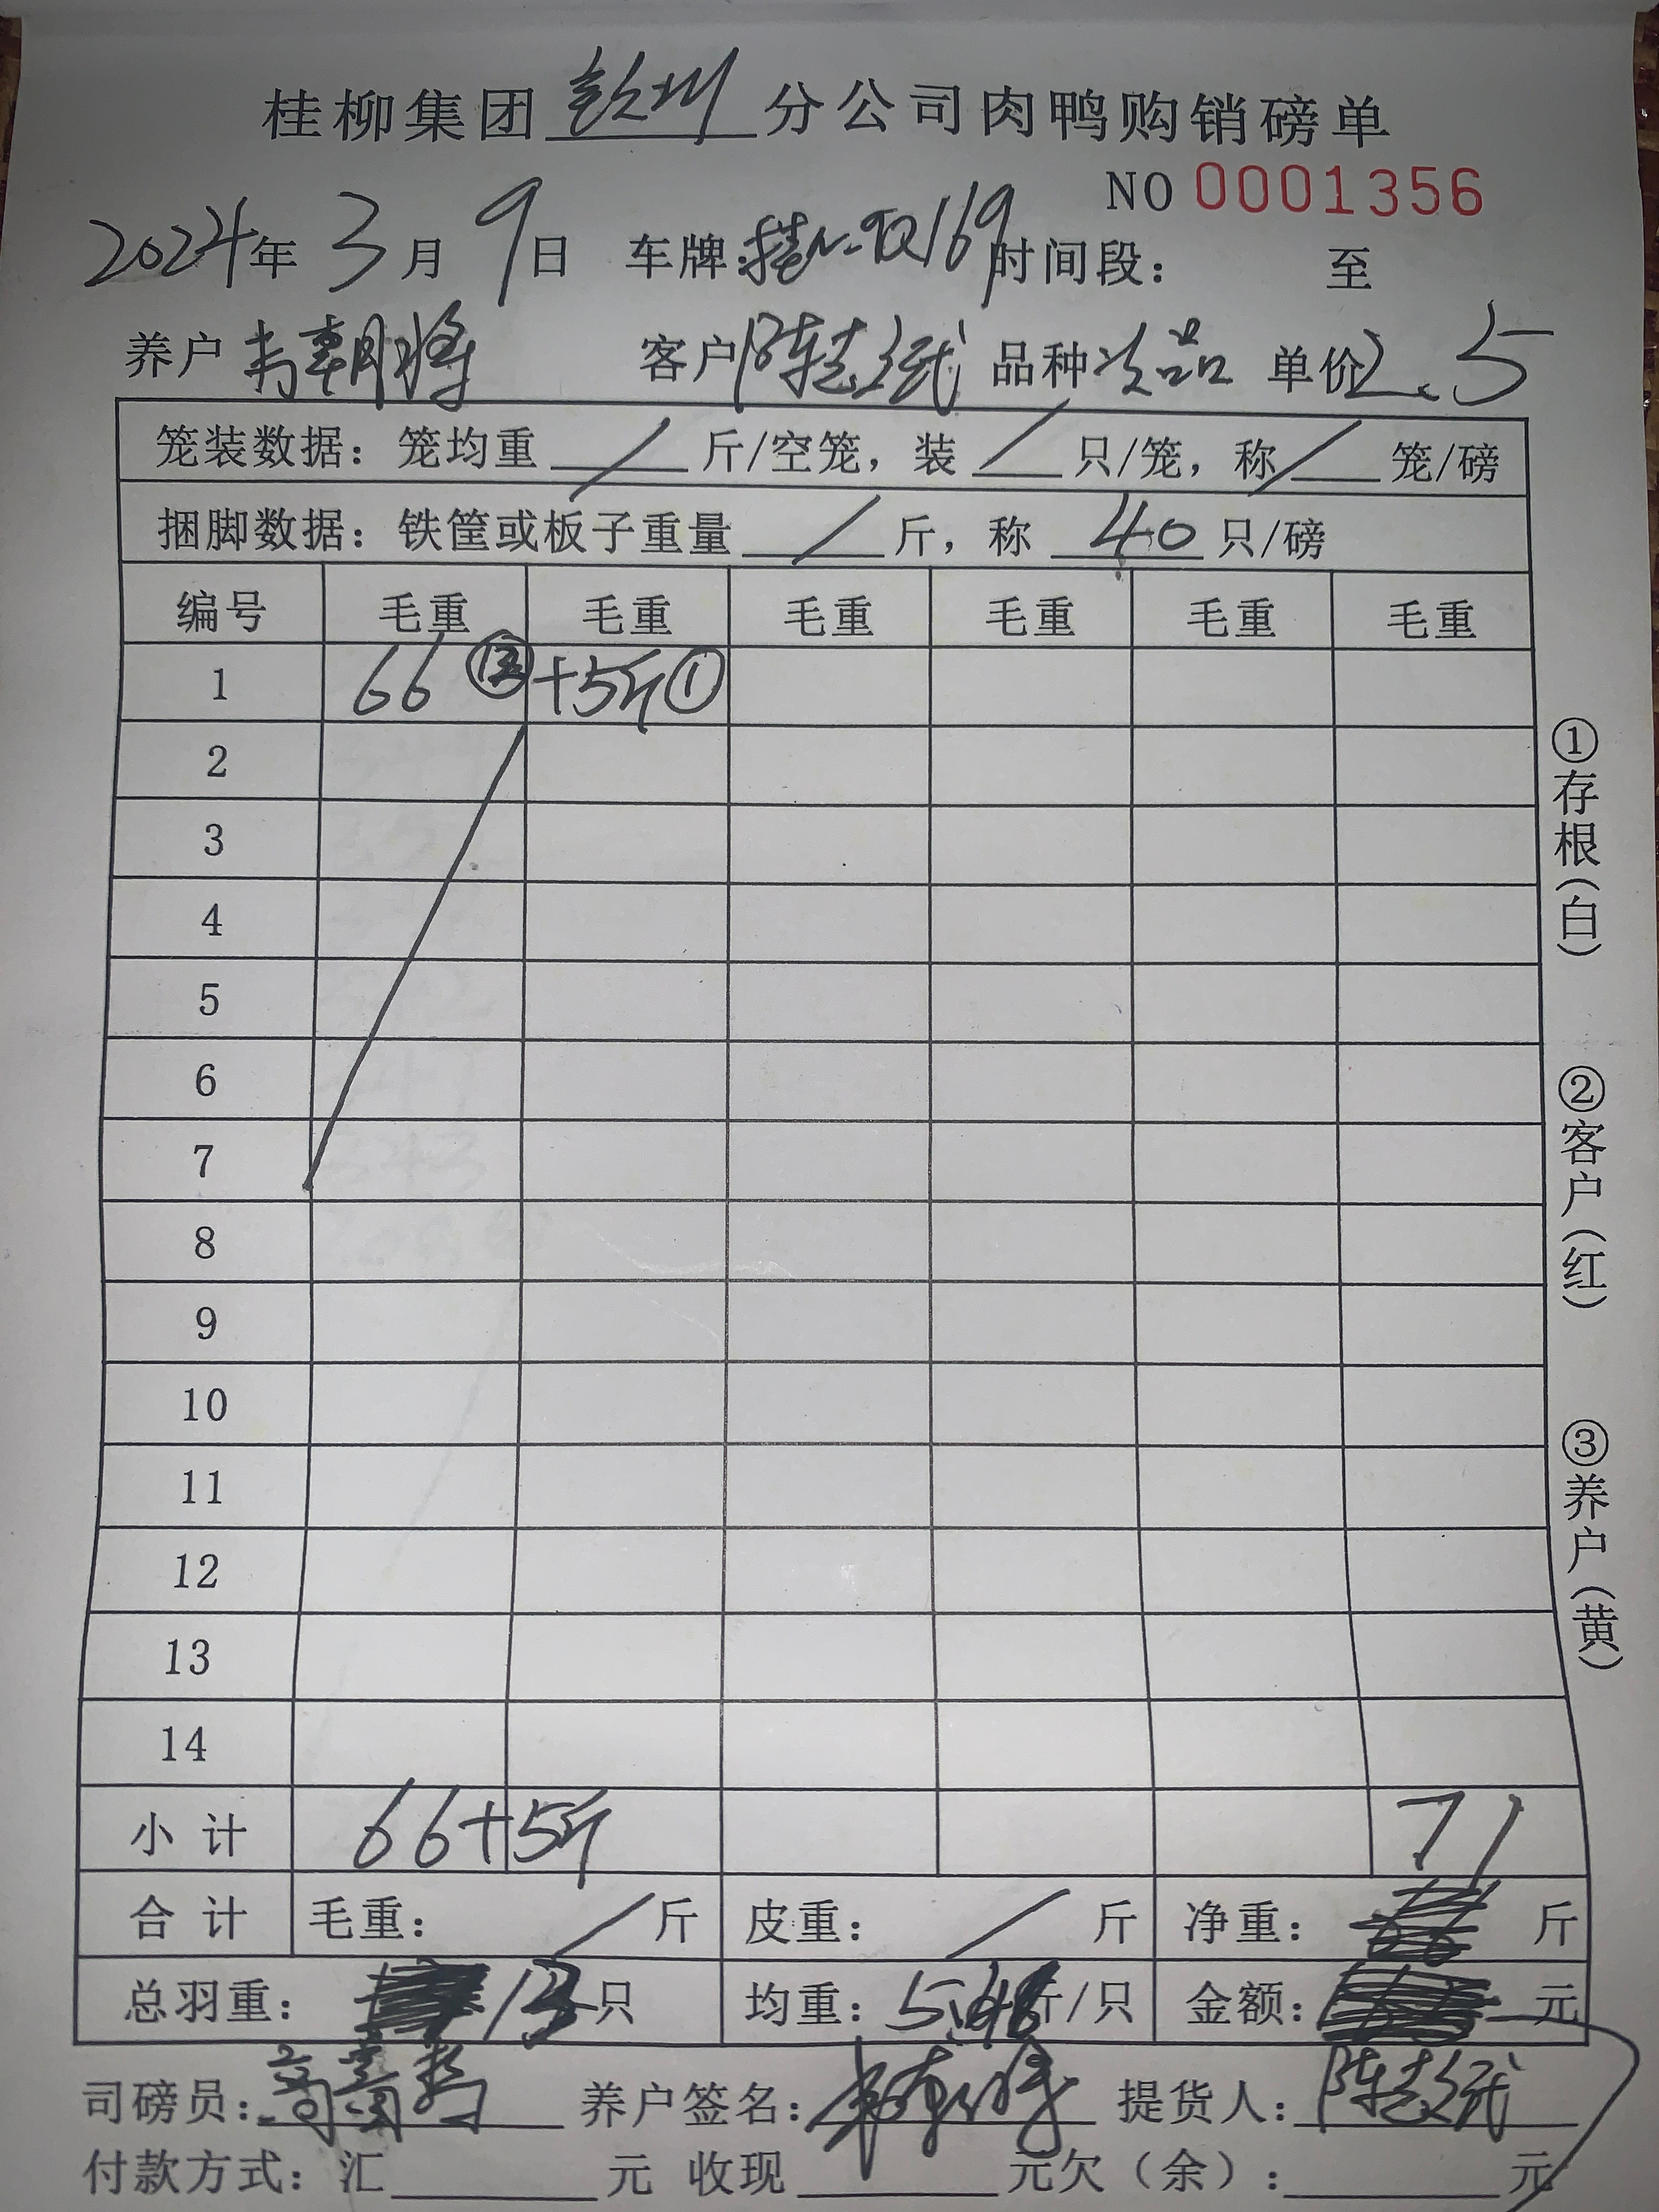 桂柳集团钦州分公司肉鸭购销磅单
NO 0001356
2024年 3月 9日 车牌：桂N·9Q169 时间段： 至
养户 韦朝将 客户 陈志 品种 次品 单价 2.5
笼装数据：笼均重 / 斤/空笼，装 / 只/笼，称 / 笼/磅
捆脚数据：铁筐或板子重量 / 斤，称 40 只/磅
编号 毛重 毛重 毛重 毛重 毛重 毛重
1 66 +5斤①
2
3
4
5
6
7
8
9
10
11
12
13
14
小计 66+5斤 71
合计 毛重： / 斤 皮重： / 斤 净重： 斤
总羽重： 13只 均重：5.46斤/只 金额： 元
司磅员： 养户签名： 提货人：陈志
付款方式：汇 元 收现 元欠（余）： 元
①存根（白）
②客户（红）
③养户（黄）